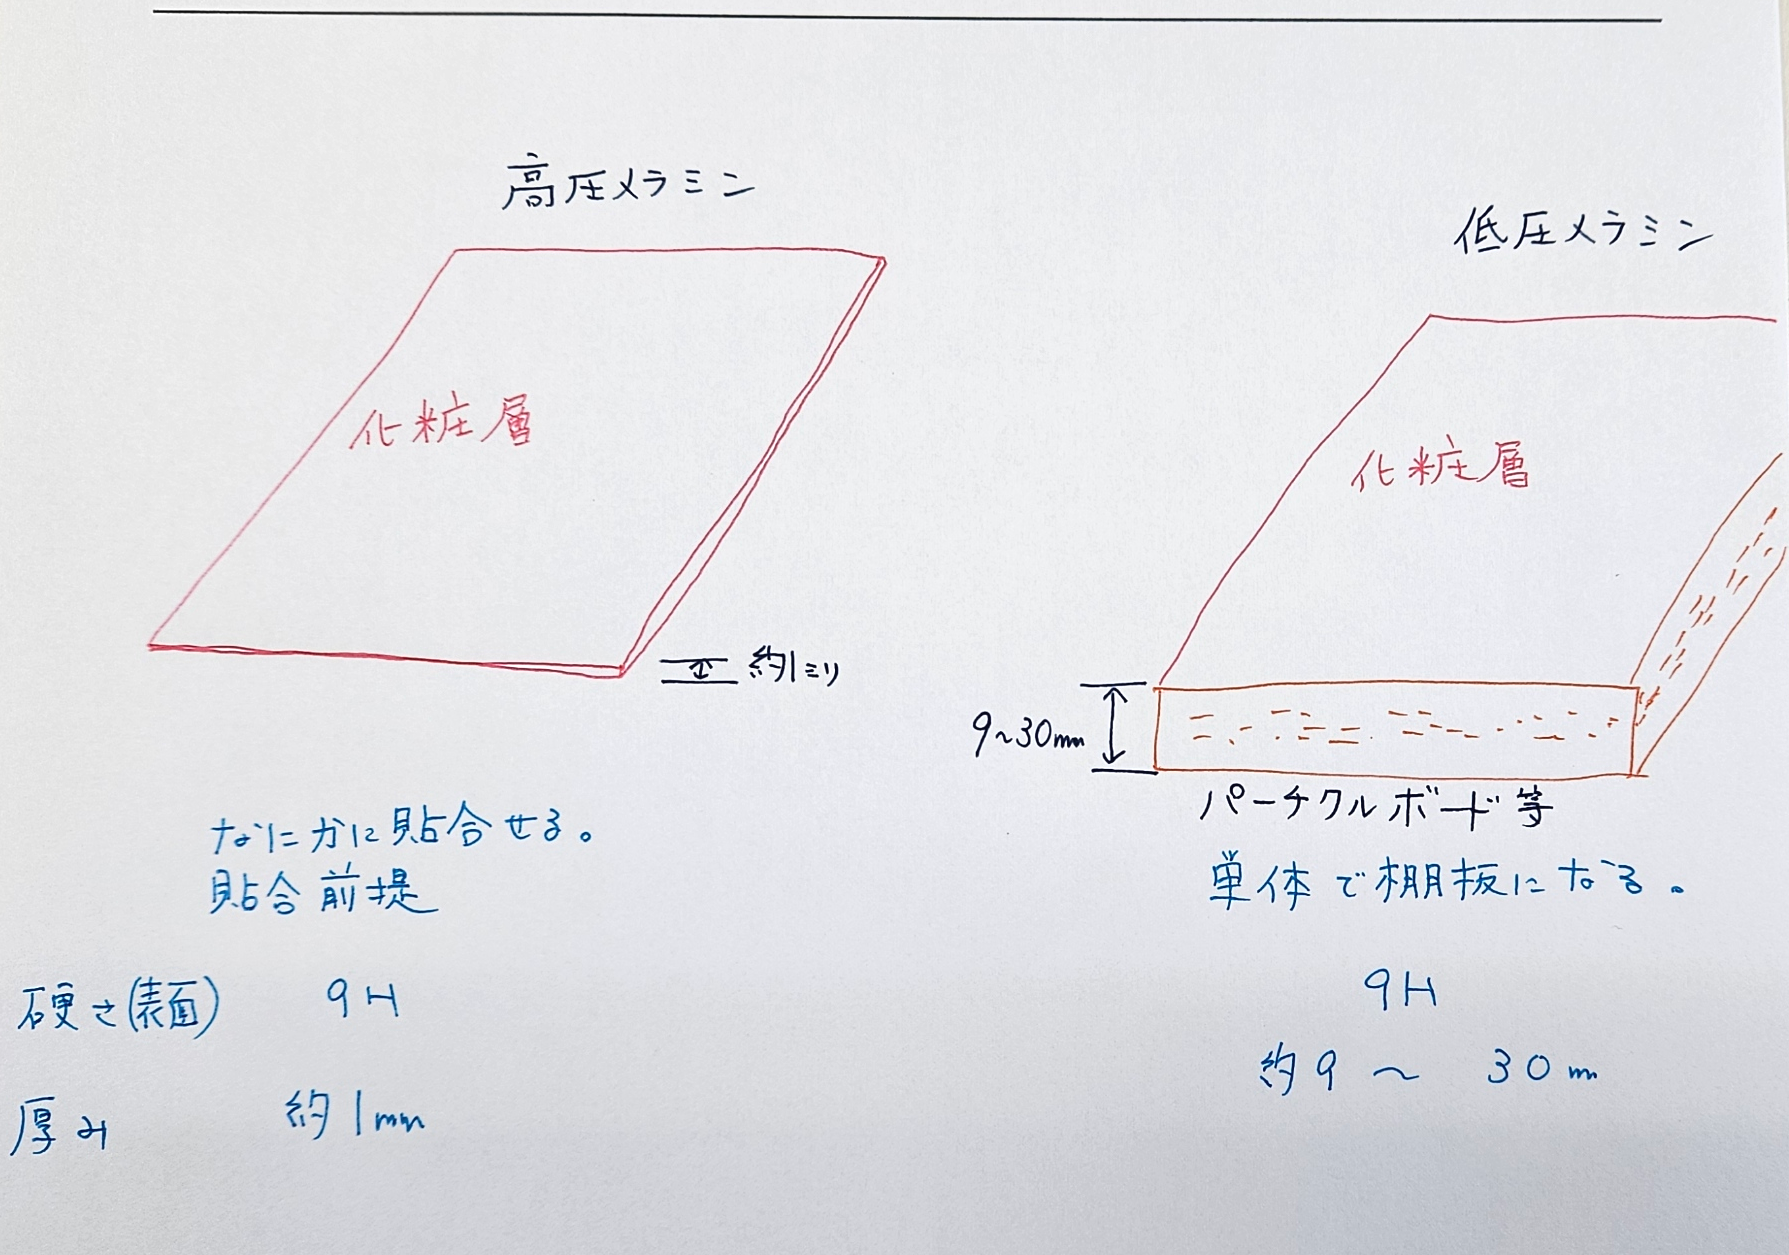 高圧メラミン
化粧層
約1ミリ
なにかに貼合せる。
貼合前提
低圧メラミン
化粧層
9~30mm
パーチクルボード等
単体で棚板になる。
硬さ(表面) 9H 9H
厚み 約1mm 約9～30m